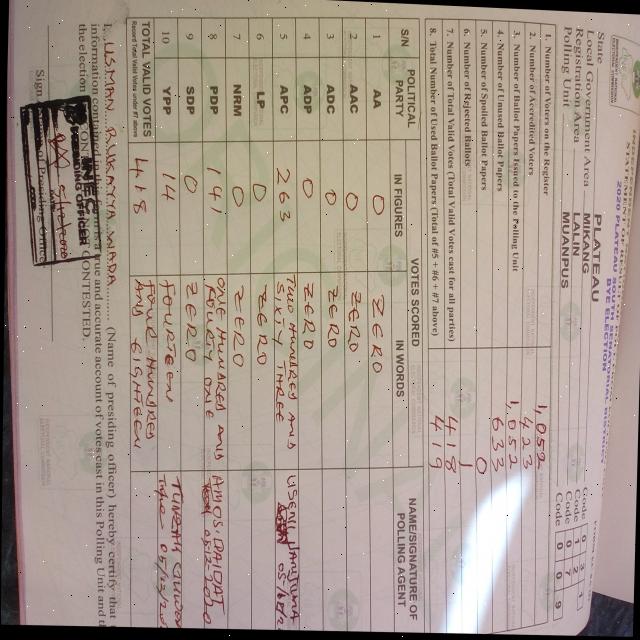 2020 PLATEAU SOUTH SENATORIAL DISTRICT
ELECTION
State PLATEAU Code 3 1
Local Government Area MIKANG Code 1 2
Registration Area LALIN Code 0 7
Polling Unit MUANPUS Code 0 0 9
1. Number of Voters on the Register 1,052
2. Number of Accredited Voters 423
3. Number of Ballot Papers Issued to the Polling Unit 1,052
4. Number of Unused Ballot Papers 633
5. Number of Spoiled Ballot Papers 0
6. Number of Rejected Ballots 1
7. Number of Total Valid Votes (Total Valid Votes cast for all parties) 418
8. Total Number of Used Ballot Papers (Total of #5 + #6 + #7 above) 419
S/N POLITICAL PARTY VOTES SCORED NAME/SIGNATURE OF POLLING AGENT
IN FIGURES IN WORDS
1 AA 0 ZERO
2 AAC 0 ZERO
3 ADC 0 ZERO
4 ADP 0 ZERO
5 APC 263 TWO HUNDRED AND SIXTY THREE
6 LP 0 ZERO
7 NRM 0 ZERO
8 PDP 141 ONE HUNDRED AND FOURTY ONE AMOS DAIDAT
9 SDP 0 ZERO
10 YPP 14 FOURTEEN
TOTAL VALID VOTES 418 FOUR HUNDRED AND EIGHTEEN
Record Total Valid Votes under #7 above
I, USMAN RUKAYYA WADA (Name of presiding officer) hereby certify that
information contained in this form is a true and accurate account of votes cast in this Polling Unit and
the election CONTESTED.
INEC
PRESIDING OFFICER
Sign of Presiding Officer